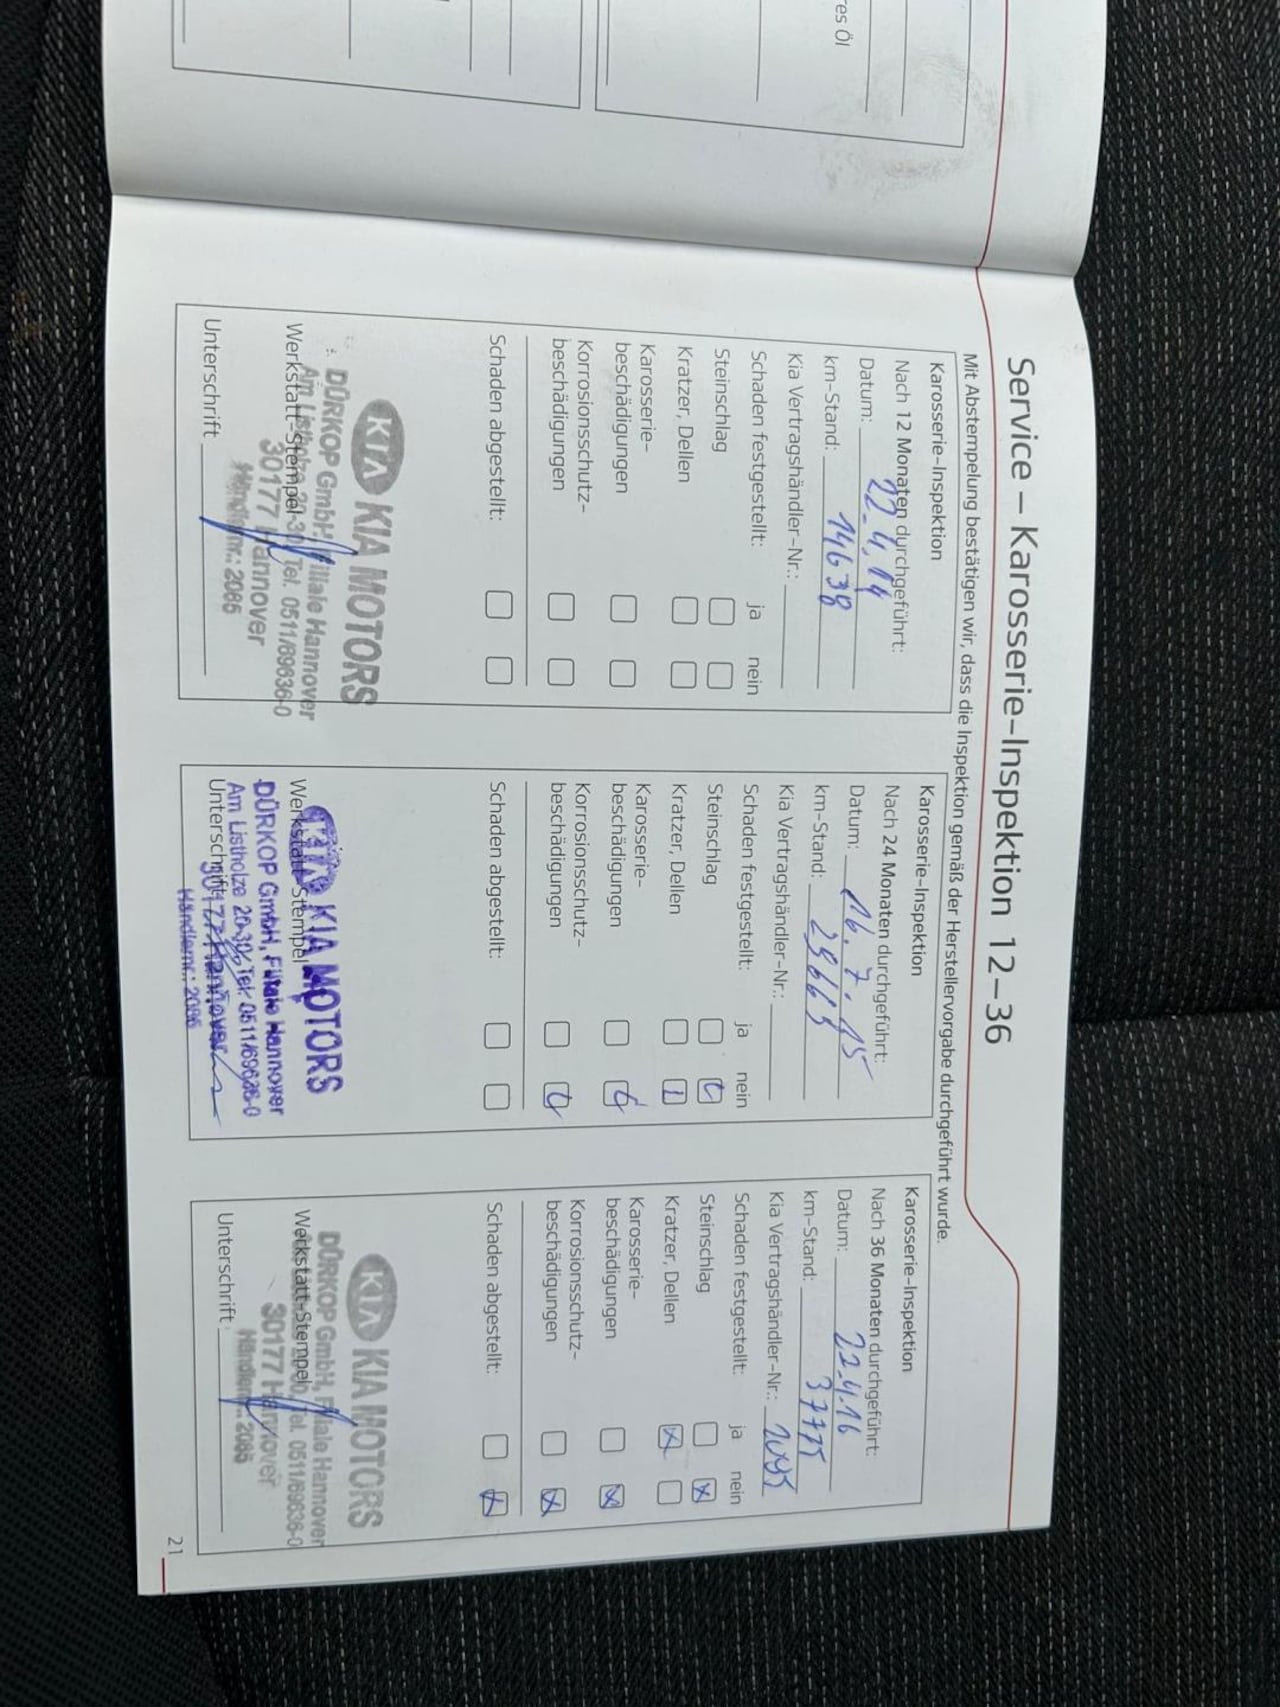 es Öl
Service – Karosserie-Inspektion 12–36
Mit Abstempelung bestätigen wir, dass die Inspektion gemäß der Herstellervorgabe durchgeführt wurde.
Karosserie-Inspektion
Nach 12 Monaten durchgeführt:
Datum: 22.4.14
km-Stand: 14638
Kia Vertragshändler-Nr.:
Schaden festgestellt: ja nein
Steinschlag
Kratzer, Dellen
Karosserie-
beschädigungen
Korrosionsschutz-
beschädigungen
Schaden abgestellt:
KIA KIA MOTORS
DÜRKOP GmbH, Filiale Hannover
Werkstatt-Stempel
Am Listholze 20-30 Tel. 0511/69636-0
30177 Hannover
Händlernr.: 2085
Unterschrift
Karosserie-Inspektion
Nach 24 Monaten durchgeführt:
Datum: 16.7.15
km-Stand:
Kia Vertragshändler-Nr.:
Schaden festgestellt: ja nein
Steinschlag
Kratzer, Dellen
Karosserie-
beschädigungen
Korrosionsschutz-
beschädigungen
Schaden abgestellt:
KIA KIA MOTORS
Werkstatt-Stempel
DÜRKOP GmbH, Filiale Hannover
Am Listholze 20-30, Tel. 0511/69636-0
Unterschrift
30177 Hannover
Händlernr.: 2085
Karosserie-Inspektion
Nach 36 Monaten durchgeführt:
Datum: 22.4.16
km-Stand: 37775
Kia Vertragshändler-Nr.:
Schaden festgestellt: ja nein
Steinschlag
Kratzer, Dellen
Karosserie-
beschädigungen
Korrosionsschutz-
beschädigungen
Schaden abgestellt:
KIA KIA MOTORS
DÜRKOP GmbH, Filiale Hannover
Werkstatt-Stempel
Tel. 0511/69636-0
30177 Hannover
Händlernr.: 2085
Unterschrift
21